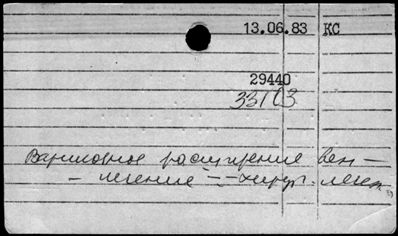 13.06.83 КС
29440
33103
Варикозное расширение вен –
– лечение – – хирур. лечен.